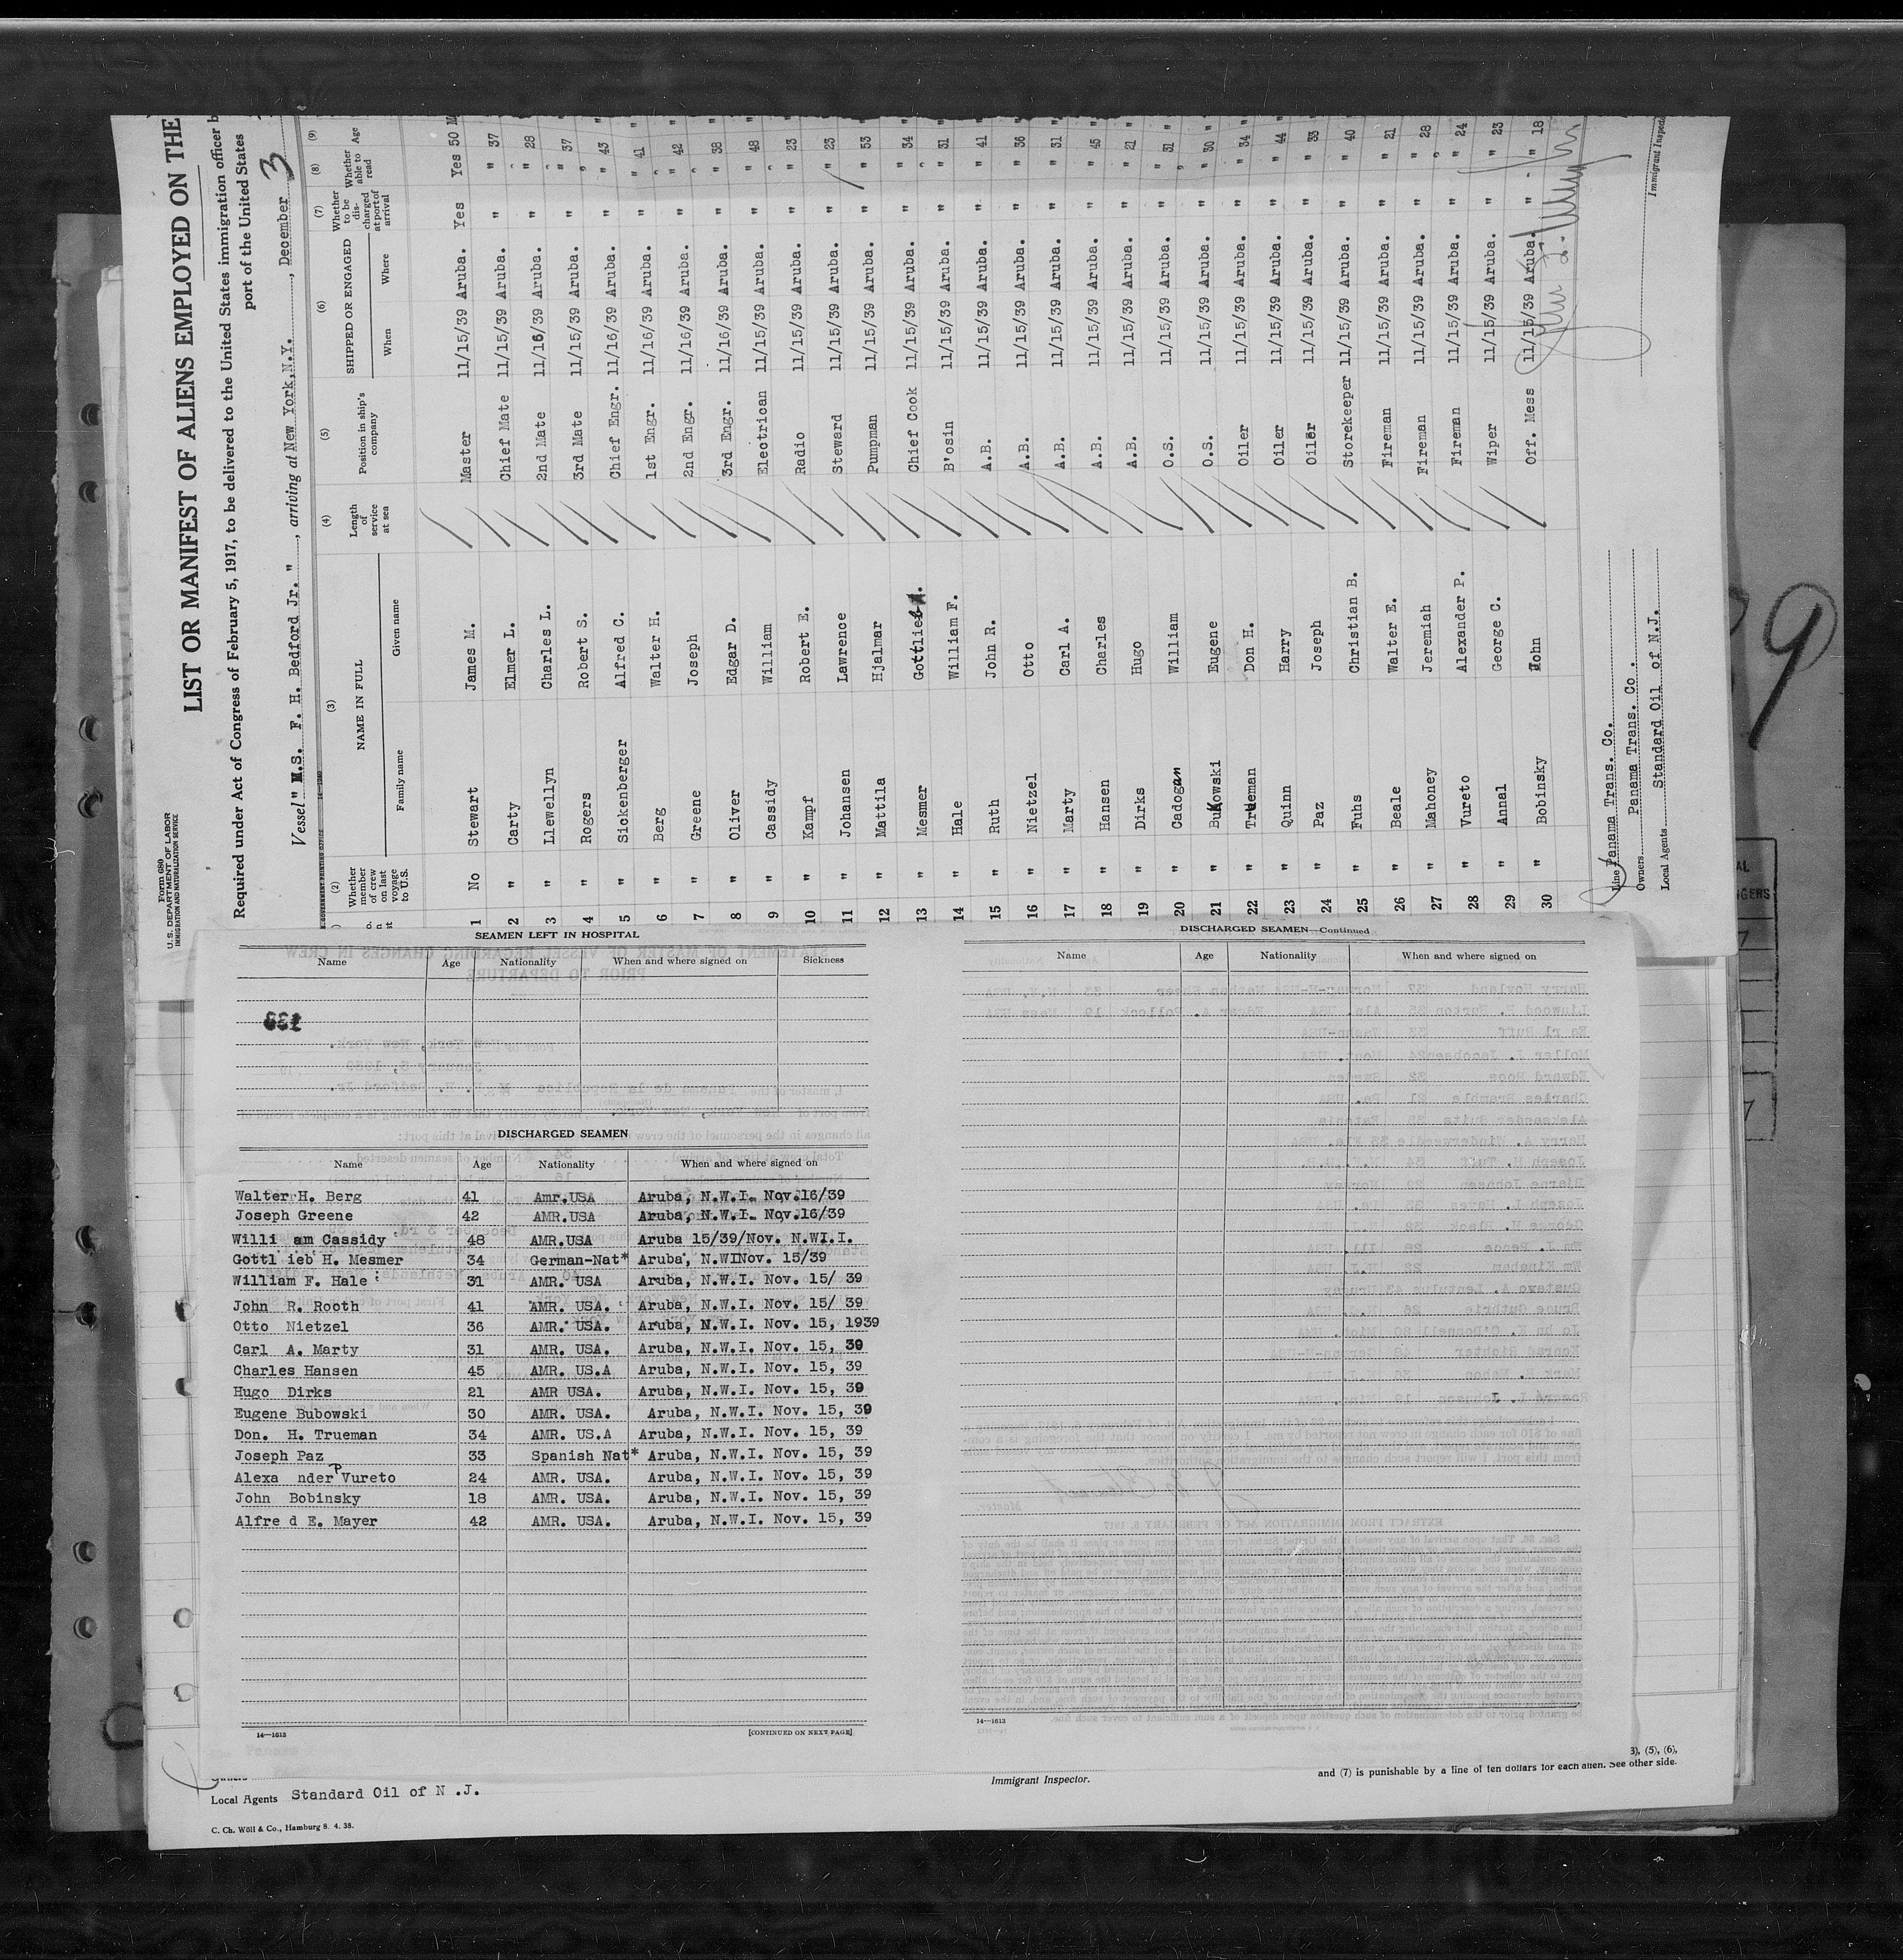 Form 680
U.S. DEPARTMENT OF LABOR
IMMIGRATION AND NATURALIZATION SERVICE
LIST OR MANIFEST OF ALIENS EMPLOYED ON THE
Required under Act of Congress of February 5, 1917, to be delivered to the United States immigration officer b
port of the United States
Vessel "M.S. F. H. Bedford Jr. ", arriving at New York,N.Y., December 3
(2) (3) (4) (5) (6) (7) (8) (9)
Whether member of crew on last voyage to U.S. NAME IN FULL Length of service at sea Position in ship's company SHIPPED OR ENGAGED Whether to be discharged at port of arrival Whether able to read Age
Family name Given name When Where
1 No Stewart James M. Master 11/15/39 Aruba. Yes Yes 50 M
2 " Carty Elmer L. Chief Mate 11/15/39 Aruba. " " 37
3 " Llewellyn Charles L. 2nd Mate 11/16/39 Aruba. " " 28
4 " Rogers Robert S. 3rd Mate 11/15/39 Aruba. " " 37
5 " Sickenberger Alfred C. Chief Engr. 11/16/39 Aruba. " " 43
6 " Berg Walter H. 1st Engr. 11/16/39 Aruba. " " 41
7 " Greene Joseph 2nd Engr. 11/16/39 Aruba. " " 42
8 " Oliver Edgar D. 3rd Engr. 11/16/39 Aruba. " " 38
9 " Cassidy William Electrican 11/15/39 Aruba. " " 48
10 " Kampf Robert E. Radio 11/15/39 Aruba. " " 23
11 " Johansen Lawrence Steward 11/15/39 Aruba. " " 23
12 " Mattila Hjalmar Pumpman 11/15/39 Aruba. " " 53
13 " Mesmer Gottlieb H. Chief Cook 11/15/39 Aruba. " " 34
14 " Hale William F. B'osin 11/15/39 Aruba. " " 31
15 " Ruth John R. A.B. 11/15/39 Aruba. " " 41
16 " Nietzel Otto A.B. 11/15/39 Aruba. " " 36
17 " Marty Carl A. A.B. 11/15/39 Aruba. " " 31
18 " Hansen Charles A.B. 11/15/39 Aruba. " " 45
19 " Dirks Hugo A.B. 11/15/39 Aruba. " " 21
20 " Cadogan William O.S. 11/15/39 Aruba. " " 31
21 " Bukowski Eugene O.S. 11/15/39 Aruba. " " 30
22 " Trueman Don H. Oiler 11/15/39 Aruba. " " 34
23 " Quinn Harry Oiler 11/15/39 Aruba. " " 44
24 " Paz Joseph Oiler 11/15/39 Aruba. " " 33
25 " Fuhs Christian B. Storekeeper 11/15/39 Aruba. " " 40
26 " Beale Walter E. Fireman 11/15/39 Aruba. " " 21
27 " Mahoney Jeremiah Fireman 11/15/39 Aruba. " " 28
28 " Vureto Alexander P. Fireman 11/15/39 Aruba. " " 24
29 " Annal George C. Wiper 11/15/39 Aruba. " " 23
30 " Bobinsky John Off. Mess 11/15/39 Aruba. " " 18
Line Panama Trans. Co.
Owners Panama Trans. Co .
Local Agents Standard Oil of N.J.
Immigrant Inspec
SEAMEN LEFT IN HOSPITAL
Name Age Nationality When and where signed on Sickness
DISCHARGED SEAMEN
Name Age Nationality When and where signed on
Walter H. Berg 41 Amr.USA Aruba, N.W.I. Nov.16/39
Joseph Greene 42 AMR.USA Aruba, N.W.I. Nov.16/39
Willi am Cassidy 48 AMR.USA Aruba 15/39/Nov. N.WI.I.
Gottl ieb H. Mesmer 34 German-Nat* Aruba, N.WINov. 15/39
William F. Hale 31 AMR. USA Aruba, N.W.I. Nov. 15/ 39
John R. Rooth 41 AMR. USA. Aruba, N.W.I. Nov. 15/ 39
Otto Nietzel 36 AMR. USA. Aruba, N.W.I. Nov. 15, 1939
Carl A. Marty 31 AMR. USA. Aruba, N.W.I. Nov. 15, 39
Charles Hansen 45 AMR. US.A Aruba, N.W.I. Nov. 15, 39
Hugo Dirks 21 AMR USA. Aruba, N.W.I. Nov. 15, 39
Eugene Bubowski 30 AMR. USA. Aruba, N.W.I. Nov. 15, 39
Don. H. Trueman 34 AMR. US.A Aruba, N.W.I. Nov. 15, 39
Joseph Paz 33 Spanish Nat* Aruba, N.W.I. Nov. 15, 39
Alexa nder P Vureto 24 AMR. USA. Aruba, N.W.I. Nov. 15, 39
John Bobinsky 18 AMR. USA. Aruba, N.W.I. Nov. 15, 39
Alfre d E. Mayer 42 AMR. USA. Aruba, N.W.I. Nov. 15, 39
14—1613 [CONTINUED ON NEXT PAGE]
DISCHARGED SEAMEN—Continued
Name Age Nationality When and where signed on
14—1613
3), (5), (6),
and (7) is punishable by a fine of ten dollars for each alien. See other side.
Immigrant Inspector.
Owners
Local Agents Standard Oil of N .J.
C. Ch. Wöll & Co., Hamburg 8. 4. 38.